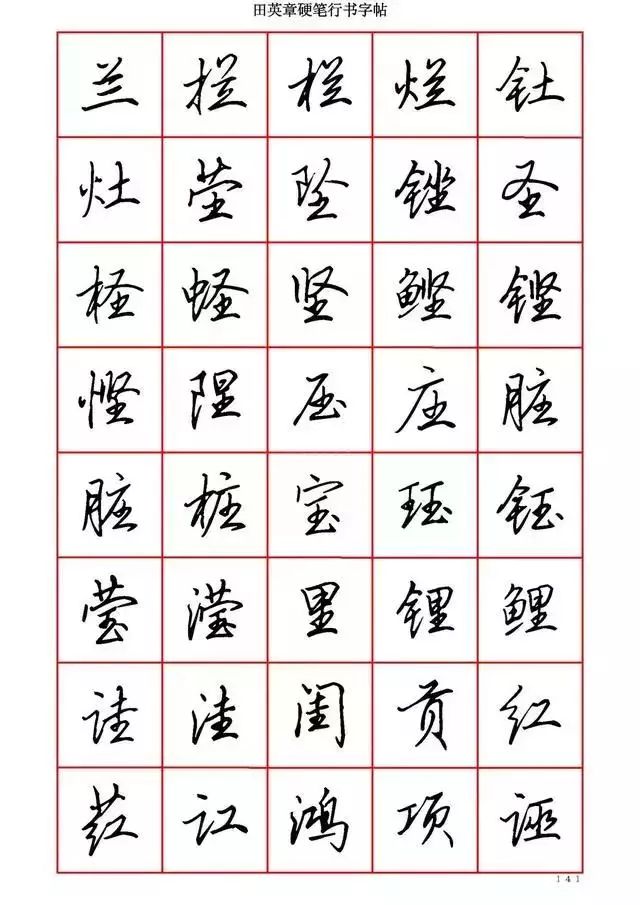 田英章硬笔行书字帖
兰 拦 栏 烂 钍
灶 茔 坠 锉 圣
柽 蛏 坚 鲣 铿
悭 陧 压 庄 脏
脏 桩 宝 珏 钰
莹 滢 里 锂 鲤
诖 洼 闺 贡 红
荭 讧 鸿 项 诬
141